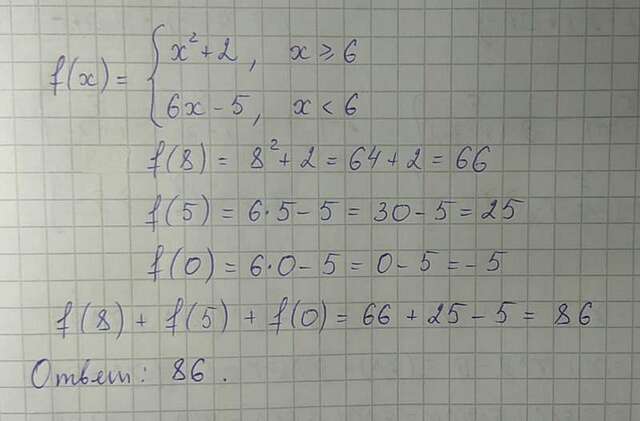 f(x) = { x² + 2, x ≥ 6
6x - 5, x < 6
f(8) = 8² + 2 = 64 + 2 = 66
f(5) = 6·5 - 5 = 30 - 5 = 25
f(0) = 6·0 - 5 = 0 - 5 = - 5
f(8) + f(5) + f(0) = 66 + 25 - 5 = 86
Ответ: 86.